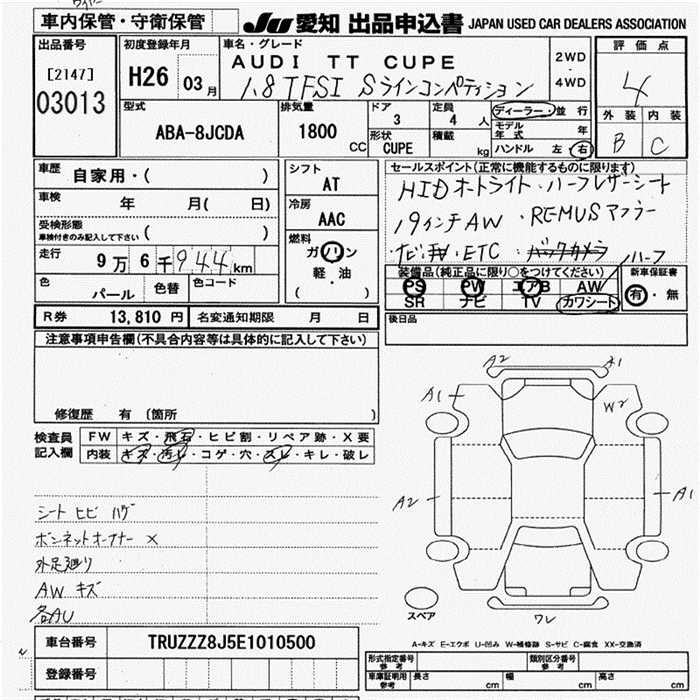 車内保管・守衛保管
JU 愛知 出品申込書 JAPAN USED CAR DEALERS ASSOCIATION
出品番号
[2147]
03013
初度登録年月
H26 03月
車名・グレード
AUDI TT CUPE
1.8 TFSI Sラインコンペティション
2WD
4WD
評価点
4
外装 内装
B C
型式
ABA-8JCDA
排気量
1800 CC
ドア
3
形状
CUPE
定員
4 人
積載
kg
ディーラー・並行
モデル年式 年
ハンドル 左・右
車歴
自家用・( )
車検
年 月( 日)
受検形態
車検付きのみ記入して下さい ( )
走行
9万6千944km
色
パール
色替
色コード
シフト
AT
冷房
AAC
燃料
ガソリン
軽・油
( )
セールスポイント(正常に機能するものに限ります)
HIDオートライト・ハーフレザーシート
19インチAW・REMUSマフラー
ETC・バックカメラ
ハーフ
装備品(純正品に限り○をつけてください)
PS PW エアB AW
SR ナビ TV カワシート
新車保証書
有・無
R券 13,810円 名変通知期限 月 日
後日品
注意事項申告欄(不具合内容等は具体的に記入して下さい)
修復歴 有 (箇所 )
検査員記入欄
FW キズ・飛石・ヒビ割・リペア跡・X要
内装 キズ・汚レ・コゲ・穴・スレ・キレ・破レ
シートヒビ ハゲ
ボンネットオープナー ×
外足廻り
AWキズ
各AU
A2 A1
A1 W2
A2 A1
スペア
ワレ
A-キズ E-エクボ U-凹み W-補修跡 S-サビ C-腐食 XX-交換済
車台番号 TRUZZZ8J5E1010500
登録番号
形式指定番号 参考 類別区分番号 参考
車庫証明用 参考 長さ cm 幅 cm 高さ cm